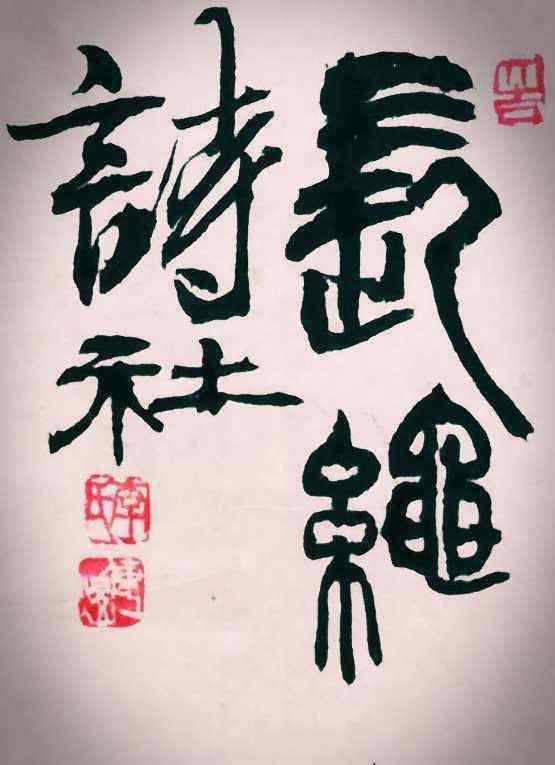 長繩
詩社